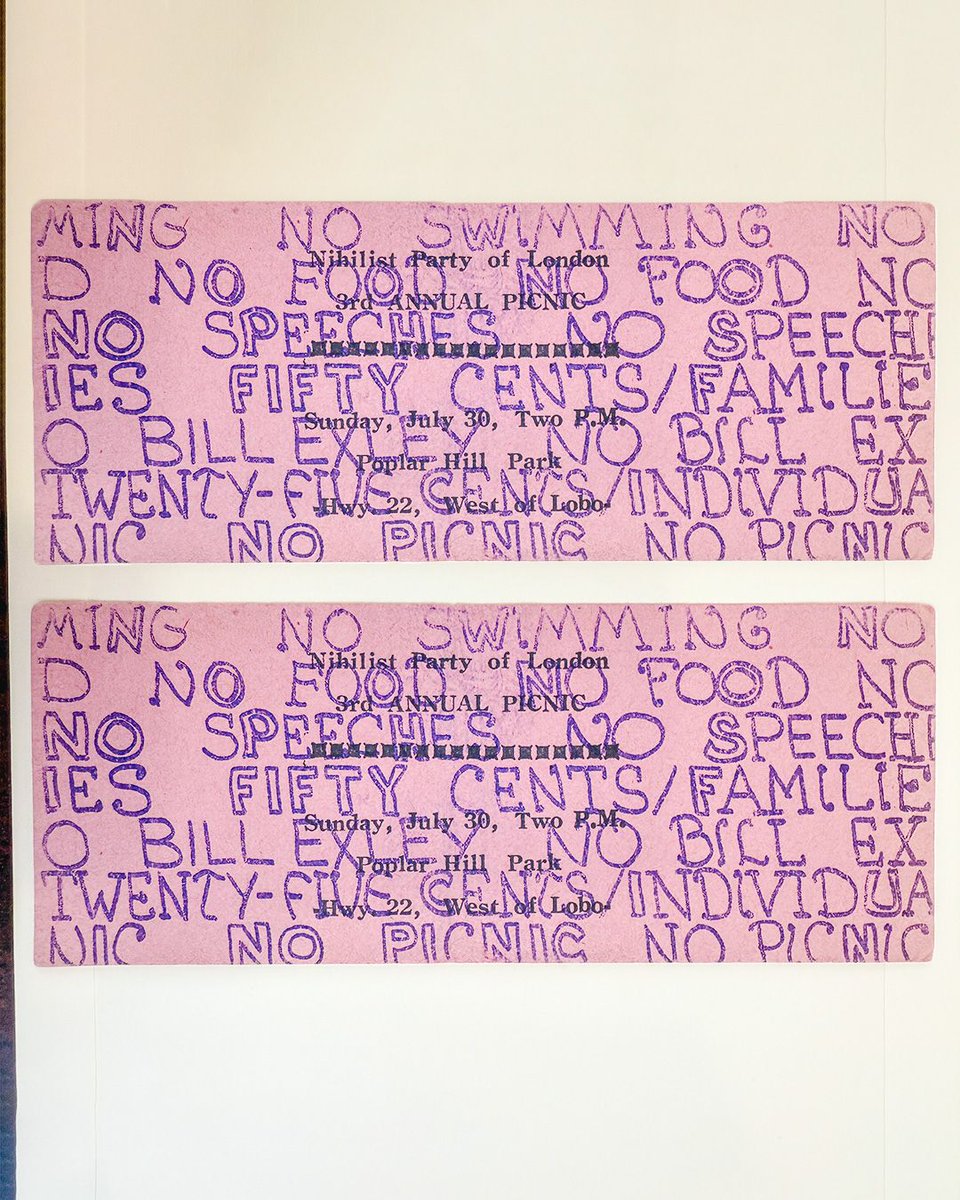 MING NO SWIMMING NO
Nihilist Party of London
D NO FOOD NO FOOD NO
3rd ANNUAL PICNIC
NO SPEECHES NO SPEECH
IES FIFTY CENTS/FAMILIE
Sunday, July 30, Two P.M.
O BILL EXLEY NO BILL EX
Poplar Hill Park
TWENTY-FIVE CENTS/INDIVIDUA
-Hwy. 22, West of Lobo-
NIC NO PICNIC NO PICNIC
MING NO SWIMMING NO
Nihilist Party of London
D NO FOOD NO FOOD NO
3rd ANNUAL PICNIC
NO SPEECHES NO SPEECHE
IES FIFTY CENTS/FAMILIE
Sunday, July 30, Two P.M.
O BILL EXLEY NO BILL EX
Poplar Hill Park
TWENTY-FIVE CENTS/INDIVIDUA
-Hwy. 22, West of Lobo-
NIC NO PICNIC NO PICNIC